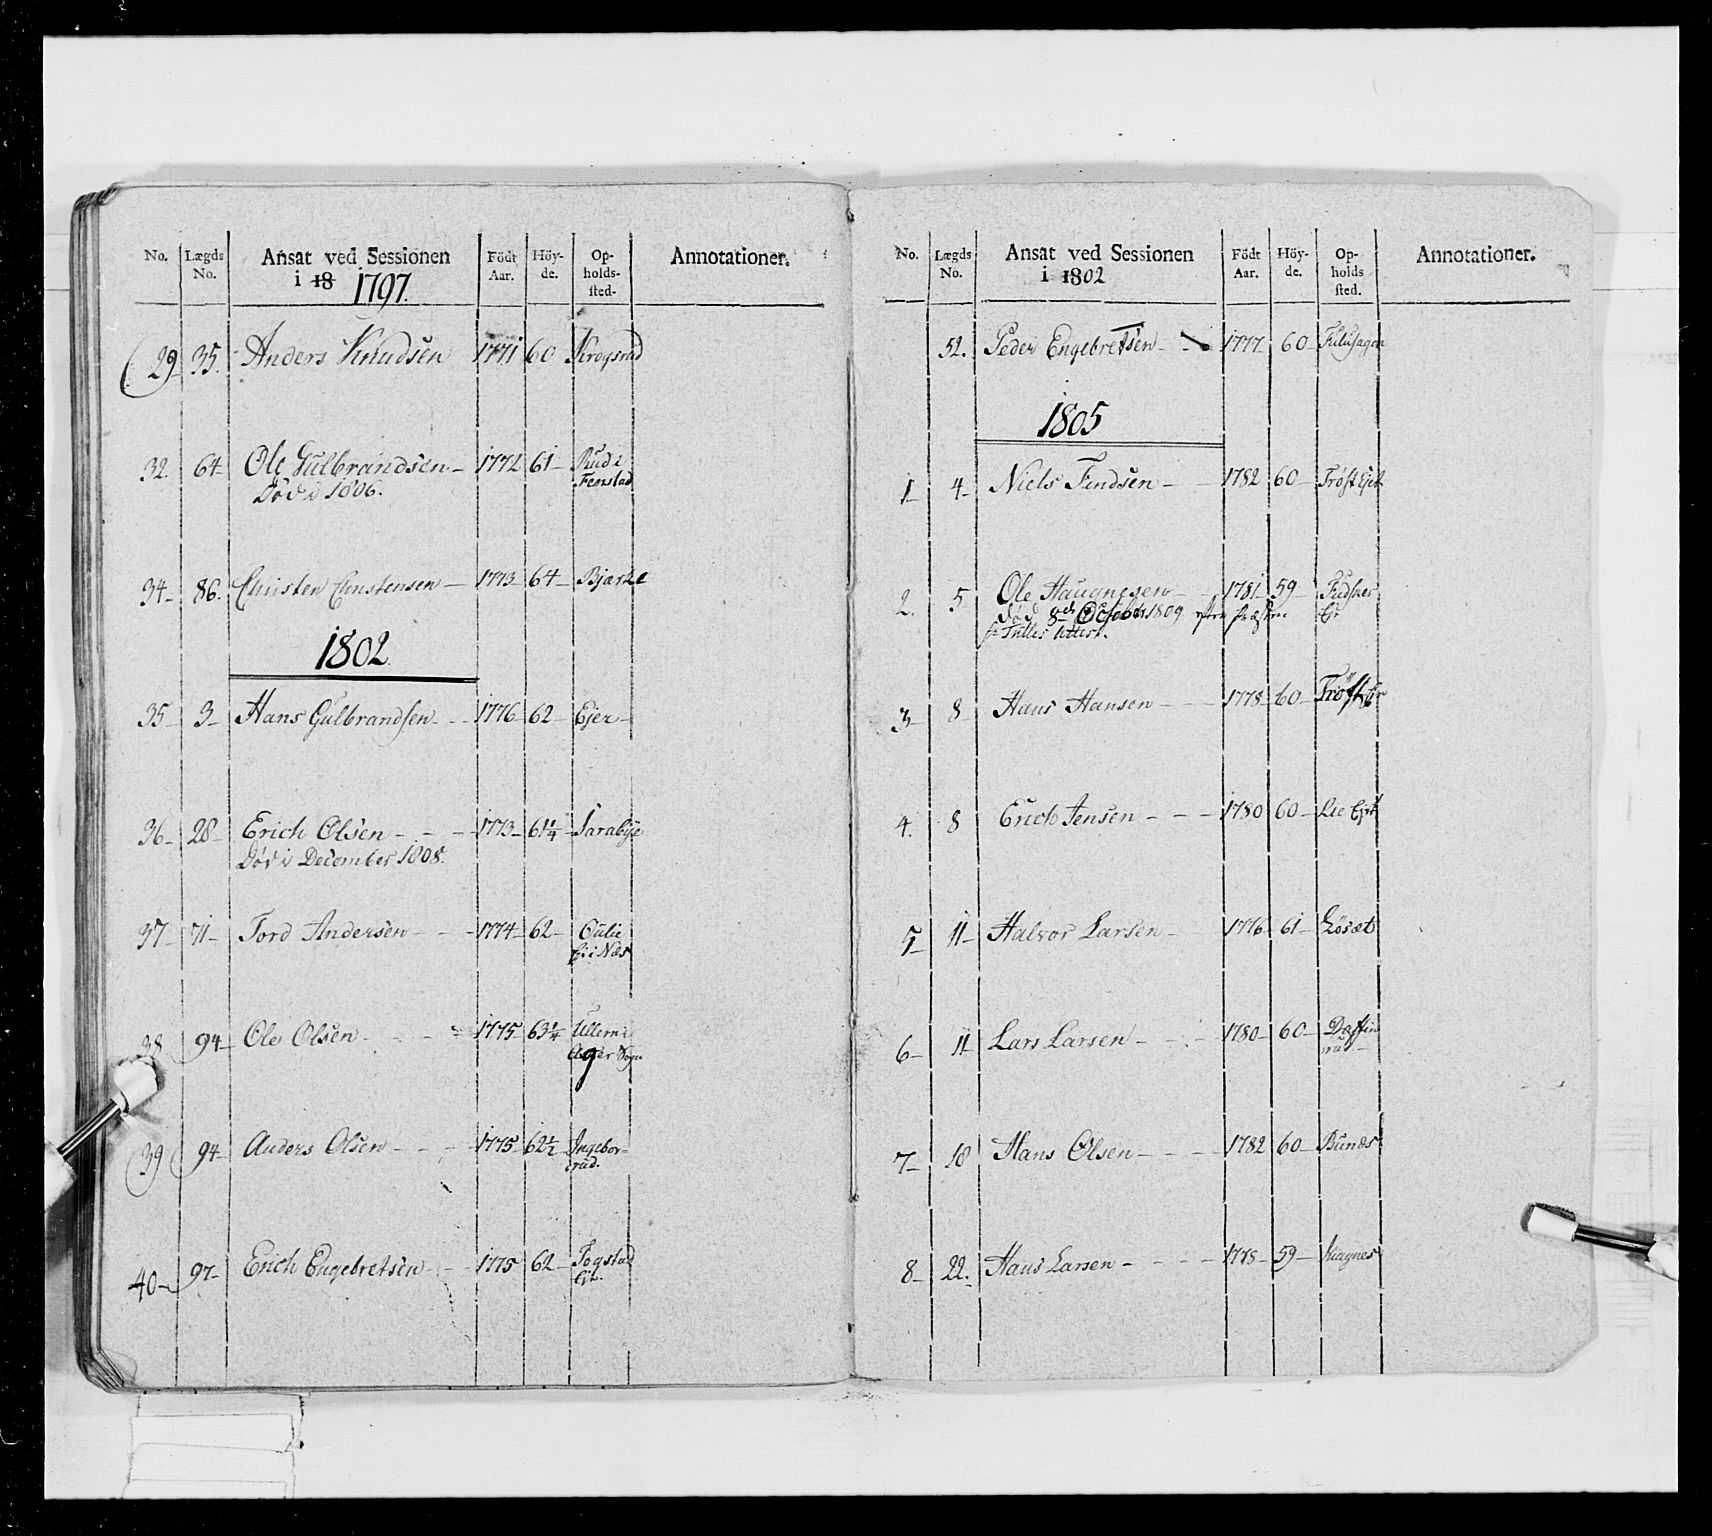 No. Lægds No. Ansat ved Sessionen i 18 1797. Födt Aar. Höy-de. Op-holds-sted. Annotationer.
29 35. Anders Knudsen 1771 60 Krogsrud
32. 64 Ole Gulbrandsen 1772 61 Rud i Femstad
Död i 1806.
34 86. Christen Christensen 1773 64 Bjarke
1802.
35 3 Hans Gulbrandsen 1776 62 Ejer
36 28 Erich Olsen 1773 61¼ Sarabye
Död i December 1808.
37 71 Tord Andersen 1774 62 Oulie
i Næs
38 94 Ole Olsen 1775 63¼ Ullern i
Ager Sogn
39 94 Anders Olsen 1775 62½ Ingebor-
rud.
40 97 Erich Engebretsen 1775 62 Fogstad
Eie.
No. Lægds No. Ansat ved Sessionen i 1802 Födt Aar. Höy-de. Op-holds sted. Annotationer.
52. Peder Engebretsen 1777 60
1805
1 4 Niels Findsen 1782 60 Trøst Ejet
2. 5 Ole Haugnesen 1781 59
död 8de October 1809 efter Præsten
Tulles Attest.
3 8 Hans Hansen 1778 60 Trøst Ejr
4. 8 Erich Jensen 1780 60 Lie Ejet
5 11 Halvor Larsen 1776 61 Løsæt
6 11 Lars Larsen 1780 60
rud
7 18 Hans Olsen 1782 60 Bunæs
8 22. Hans Larsen 1778 59 Haagnes